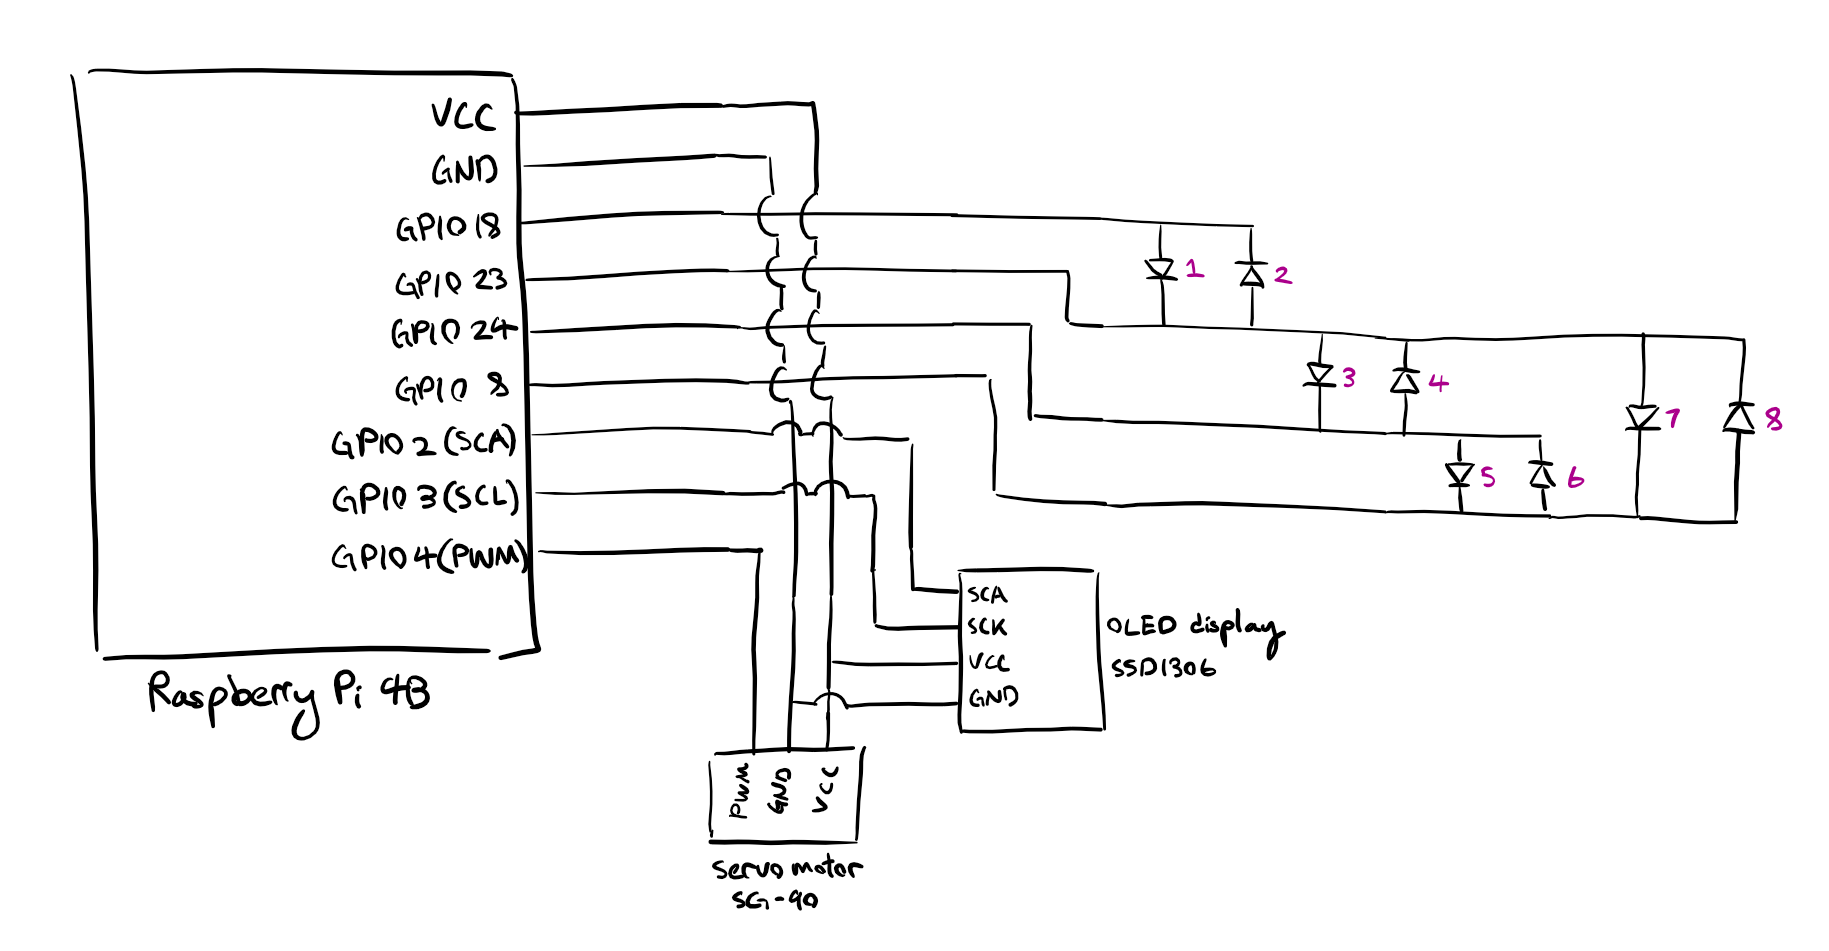 VCC
GND
GPIO 18
GPIO 23
GPIO 24
GPIO 8
GPIO 2 (SCA)
GPIO 3 (SCL)
GPIO 4 (PWM)
Raspberry Pi 4B
1
2
3
4
5
6
7
8
SCA
SCK
VCC
GND
OLED display
SSD1306
PWM
GND
VCC
Servo motor
SG-90